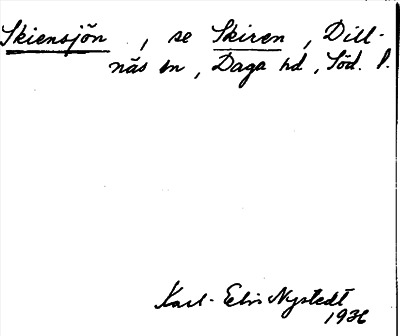 Skiensjön , se Skiren , Dill-
näs sn , Daga hd , Söd. l.
Karl-Elvis Nystedt
1936